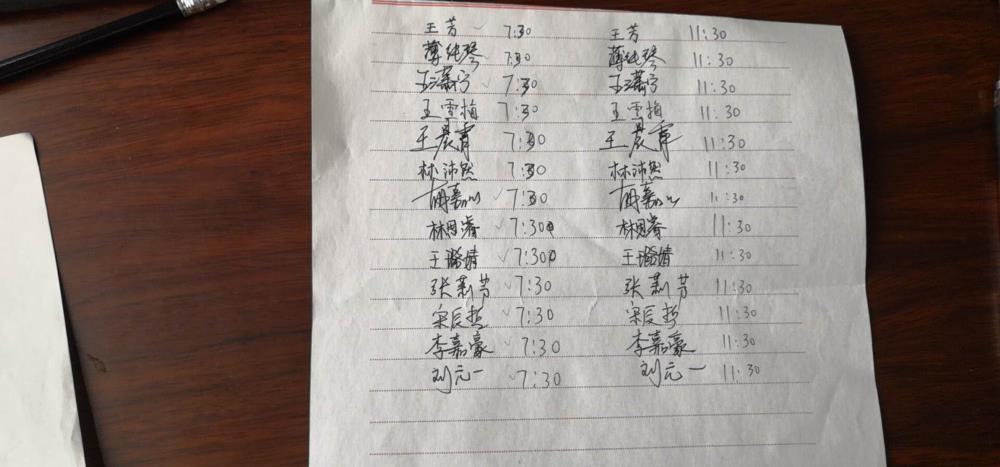 王芳 ✓ 7:30 王芳 11:30
薄纯琴 7:30 薄纯琴 11:30
王潇宁 ✓ 7:30 王潇宁 11:30
王雪梅 ✓ 7:30 王雪梅 11:30
王晨霄 7:30 王晨霄 11:30
林沛然 7:30 林沛然 11:30
胡嘉 ✓ 7:30 胡嘉 11:30
林思睿 ✓ 7:30 林思睿 11:30
王璐婧 ✓ 7:30 王璐婧 11:30
张莉芳 ✓ 7:30 张莉芳 11:30
宋辰哲 ✓ 7:30 宋辰哲 11:30
李嘉豪 ✓ 7:30 李嘉豪 11:30
刘元一 ✓ 7:30 刘元一 11:30